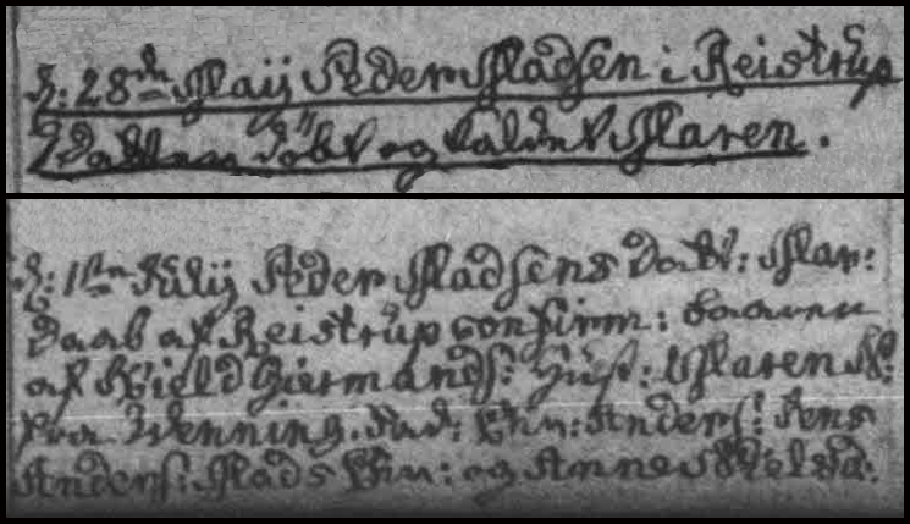 d: 28de Maij Peder Madsen i Reistrup
Datter döbt og kaldet Maren.
d: 1ste Julij Peder Madsens Datt: Mar:
daab af Reistrup confirm: baaren
af Kield Hiermands: Hust: Maren
fra Wenning. Fad: Chr: Anders: Jens
Anders: Mads Chr: og Anne